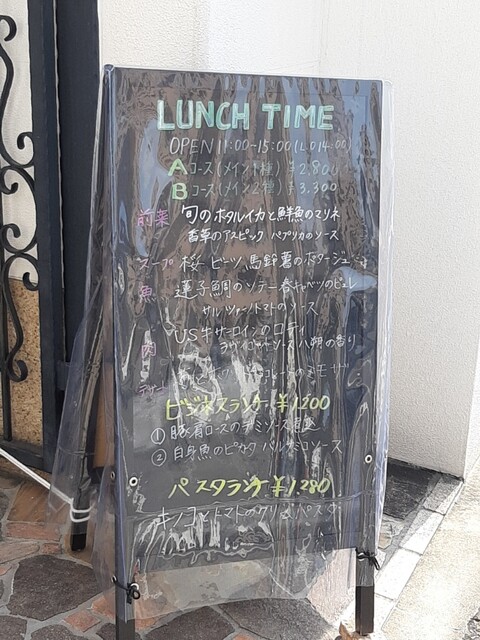 LUNCH TIME
OPEN 11:00-15:00(L.O14:00)
Aコース(メイン1種) ¥2,800
Bコース(メイン2種) ¥3,300
前菜 旬のホタルイカと鮮魚のマリネ
香草のアスピック パプリカのソース
スープ 桜ビーツ、馬鈴薯のポタージュ
魚 蓮子鯛のソテー春キャベツのピュレ
サルサァーノトマトのソース
肉 US牛サーロインのロティ
ソース 八朔の香り
ビジネスランチ¥1,200
① 豚肩ロースのデミソース
② 白身魚のピカタ バルサミコソース
パスタランチ¥1,280
キノコとトマトのクリームパスタ